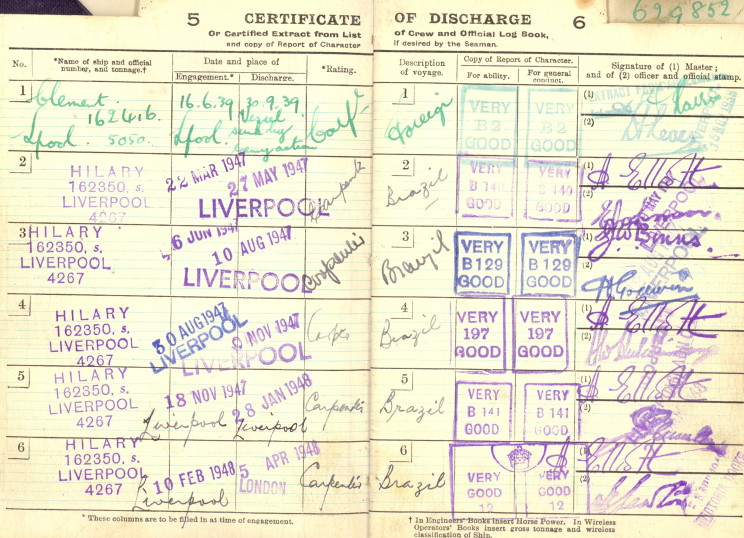 5 CERTIFICATE
Or Certified Extract from List
and copy of Report of Character
No.
*Name of ship and official
number, and tonnage.†
Date and place of
Engagement.*
Discharge.
*Rating.
1
Clement.
162416.
Lpool. 5050.
16.6.39
Lpool.
30.9.39
Vessel
sunk by
enemy action
Carp
2
HILARY
162350, s.
LIVERPOOL
4267
22 MAR 1947
27 MAY 1947
LIVERPOOL
Carpenter
3
HILARY
162350, s.
LIVERPOOL
4267
6 JUN 1947
10 AUG 1947
LIVERPOOL
Carpenter
4
HILARY
162350, s.
LIVERPOOL
4267
30 AUG 1947
LIVERPOOL
NOV 1947
LIVERPOOL
5
HILARY
162350, s.
LIVERPOOL
4267
18 NOV 1947
Liverpool
28 JAN 1948
Liverpool
Carpenter
6
HILARY
162350, s.
LIVERPOOL
4267
10 FEB 1948
Liverpool
5 APR 1948
LONDON
Carpenter
* These columns are to be filled in at time of engagement.
629852
OF DISCHARGE 6
of Crew and Official Log Book,
if desired by the Seaman.
Description
of voyage.
Copy of Report of Character.
For ability.
For general
conduct.
Signature of (1) Master;
and of (2) officer and official stamp.
1
Foreign
VERY
B 2
GOOD
VERY
B 2
GOOD
(1)
(2)
2
Brazil
VERY
B 140
GOOD
VERY
B 140
GOOD
(1)
(2)
3
Brazil
VERY
B 129
GOOD
VERY
B 129
GOOD
(1)
(2)
4
Brazil
VERY
197
GOOD
VERY
197
GOOD
(1)
(2)
5
Brazil
VERY
B 141
GOOD
VERY
B 141
GOOD
(1)
(2)
6
Brazil
VERY
GOOD
12
VERY
GOOD
12
(1)
(2)
† In Engineers' Books insert Horse Power. In Wireless
Operators' Books insert gross tonnage and wireless
classification of Ship.